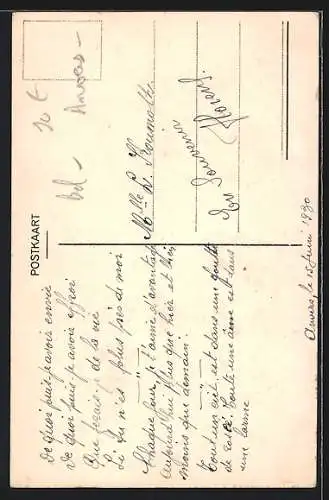 POSTKAART
10 €
Bel - Anvers -
Mlle L.
En Souvenir
Anvers, le 15 Juin 1930
De quoi puis-je avoir envie
De quoi puis-je avoir effroi
Que ferais-je de la vie
Si tu n'es plus près de moi
Chaque jour je t'aime d'avantage
Aujourd'hui plus que hier et bien
moins que demain.
Tout un ciel est dans une goutte
de rosée. Toute une âme est dans
une larme